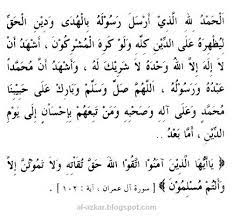 الْحَمْدُ للهِ الَّذِيْ أَرْسَلَ رَسُوْلَهُ بِالْهُدَى وَدِيْنِ الْحَقِّ
لِيُظْهِرَهُ عَلَى الدِّيْنِ كُلِّهِ وَلَوْ كَرِهَ الْمُشْرِكُوْنَ، أَشْهَدُ أَنْ
لاَ إِلَهَ إِلاَّ اللهُ وَحْدَهُ لاَ شَرِيْكَ لَهُ، وَأَشْهَدُ أَنَّ مُحَمَّدًا
عَبْدُهُ وَرَسُوْلُهُ، اللَّهُمَّ صَلِّ وَسَلِّمْ وَبَارِكْ عَلَى حَبِيْبِنَا
مُحَمَّدٍ وَعَلَى آلِهِ وَصَحْبِهِ وَمَنْ تَبِعَهُمْ بِإِحْسَانٍ إِلَى يَوْمِ
الدِّيْنِ، أَمَّا بَعْدُ ..
﴿ يَاأَيُّهَا الَّذِيْنَ آمَنُوْا اتَّقُوْا اللهَ حَقَّ تُقَاتِهِ وَلاَ تَمُوْتُنَّ إِلاَّ
وَأَنْتُمْ مُسْلِمُوْنَ ﴾ [ سورة آل عمران ، آية : ١٠٢ ] .
al-azkar.blogspot.com